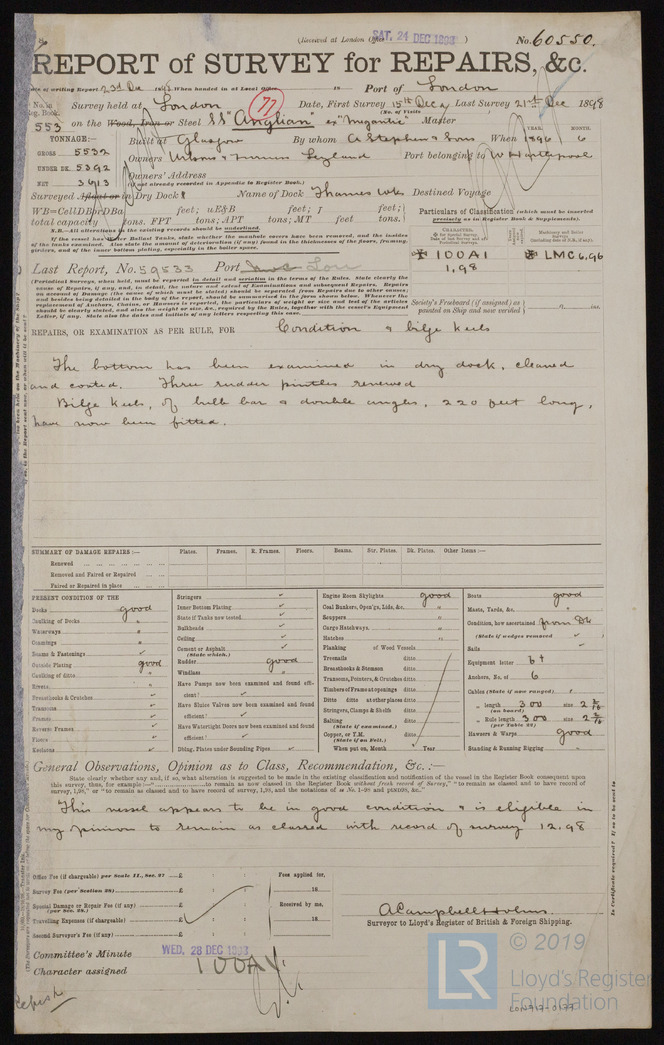 (Received at London Office
SAT. 24 DEC 1898
)
No. 60550.
REPORT of SURVEY for REPAIRS, &c.
Date of writing Report 23rd Dec 1898 When handed in at Local Office 18 Port of London
No. in Reg. Book. Survey held at London Date, First Survey 15th Dec Last Survey 21st Dec 1898
(No. of Visits
77
553 on the Wood, Iron or Steel SS "Anglian" ex "Megantic" Master
TONNAGE:— Built at Glasgow By whom A Stephen & Sons When 1896 6
YEAR. MONTH.
GROSS 5532
UNDER DK. 5392 Owners Leyland Port belonging to W Hartlepool
NET 3613 Owners' Address
(if not already recorded in Appendix to Register Book.)
Surveyed Afloat or in Dry Dock Name of Dock Thames Wks Destined Voyage
WB=CellDBorDBa feet; uE&B feet; f feet;
total capacity tons. FPT tons; APT tons; MT feet tons.
N.B.—All alterations in the existing records should be underlined.
Particulars of Classification (which must be inserted precisely as in Register Book & Supplements).
CHARACTER.
100A1
1,98
LMC 6,96
Last Report, No. 59533 Port Lon
Society's Freeboard (if assigned) as painted on Ship and now verified ft. ins.
REPAIRS, OR EXAMINATION AS PER RULE, FOR Condition & bilge keels
The bottom has been examined in dry dock, cleaned
and coated. Three rudder pintles renewed
Bilge keels, of bulb bar & double angles, 220 feet long,
have now been fitted.
SUMMARY OF DAMAGE REPAIRS:— Plates. Frames. R. Frames. Floors. Beams. Str. Plates. Dk. Plates. Other Items:—
Renewed
Removed and Faired or Repaired
Faired or Repaired in place
PRESENT CONDITION OF THE
Decks good
Caulking of Decks "
Waterways "
Coamings "
Beams & Fastenings
Outside Plating good
Caulking of ditto "
Rivets "
Breasthooks & Crutches
Transoms
Frames
Reverse Frames
Floors
Keelsons
Stringers
Inner Bottom Plating
State if Tanks now tested
Bulkheads
Ceiling
Cement or Asphalt
(State which.)
Rudder good
Windlass "
Have Pumps now been examined and found efficient?
Have Sluice Valves now been examined and found efficient?
Have Watertight Doors now been examined and found efficient?
Dblng. Plates under Sounding Pipes
Engine Room Skylights good
Coal Bunkers, Open'gs, Lids, &c. "
Scuppers "
Cargo Hatchways "
Hatches "
Planking of Wood Vessels
Treenails ditto
Breasthooks & Stemson ditto
Transoms, Pointers, & Crutches ditto
Timbers of Frame at openings ditto
Ditto ditto at other places ditto
Stringers, Clamps & Shelfs ditto
Salting ditto
(State if examined.)
Copper, or Y.M. ditto
(State if on Felt.)
When put on, Month Year
Boats good
Masts, Yards, &c. "
Condition, how ascertained from Dk
(State if wedges removed
Sails
Equipment letter b†
Anchors, No. of 6
Cables (State if now ranged)
" length 300 size 2 3/16
(on board)
" Rule length 300 size 2 3/16
(per Table 22)
Hawsers & Warps good
Standing & Running Rigging "
General Observations, Opinion as to Class, Recommendation, &c.:—
State clearly whether any and, if so, what alteration is suggested to be made in the existing classification and notification of the vessel in the Register Book consequent upon
This vessel appears to be in good condition & is eligible in
my opinion to remain as classed with record of survey 12.98
Office Fee (if chargeable) per Scale II., Sec. 27 £
Survey Fee (per Section 28) £
Special Damage or Repair Fee (if any) £
(per Sec. 28.)
Travelling Expenses (if chargeable) £
Second Surveyor's Fee (if any) £
Fees applied for,
18
Received by me,
18
A Campbell Holms
Surveyor to Lloyd's Register of British & Foreign Shipping.
Committee's Minute WED. 28 DEC 1898
Character assigned 100A1
LR
© 2019
Lloyd's Register
Foundation
LON717-0177